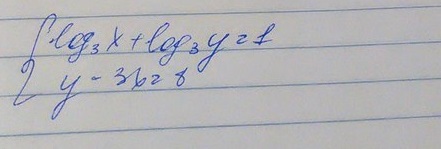 log₃x + log₃y = 1
y - 3x = 8